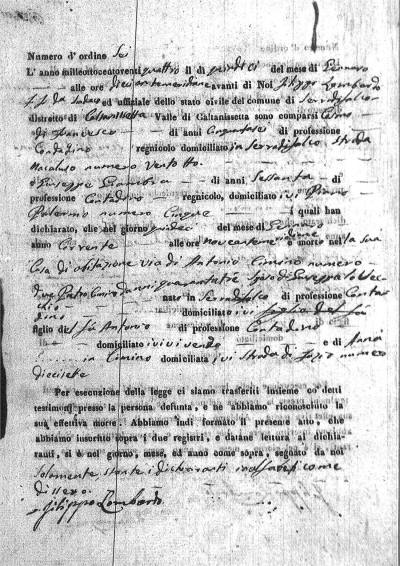 Numero d'ordine Sei
L'anno milleottocentoventi quattro il di quindici del mese di Gennaro
alle ore dieci antemeridiane avanti di Noi Filippo Lombardo
ed uffiziale dello stato civile del comune di Serradifalco
distretto di Caltanissetta Valle di Caltanissetta sono comparsi
di Francesco di anni Cinquantasei di professione
Contadino regnicolo domiciliato in Serradifalco strada
numero ventotto
Giuseppe di anni Sessanta di
professione Contadino regnicolo, domiciliato ivi
Palermo numero Cinque i quali han
dichiarato, che nel giorno quindici del mese di Gennaro
anno Corrente alle ore nove antemeridiane è morto nella sua
Casa di abitazione via di Antonio Cimino numero
due Pietro d'anni quaranta tre Sposo di
nato in Serradifalco di professione Contadino
domiciliato ivi figlio del fu
figlio del fu Antonio di professione Contadino
domiciliato ivi vivendo e di Anna
Cimino domiciliata ivi Strada di numero
diecisete
Per esecuzione della legge ci siamo trasferiti insieme co' detti
testimonj presso la persona defunta, e ne abbiamo riconosciuto la
sua effettiva morte. Abbiamo indi formato il presente atto, che
abbiamo inscritto sopra i due registri, e datane lettura ai dichia-
ranti, si è nel giorno, mese, ed anno come sopra, segnato da noi
Solamente stante i dichiaranti come
dissero.
Filippo Lombardo